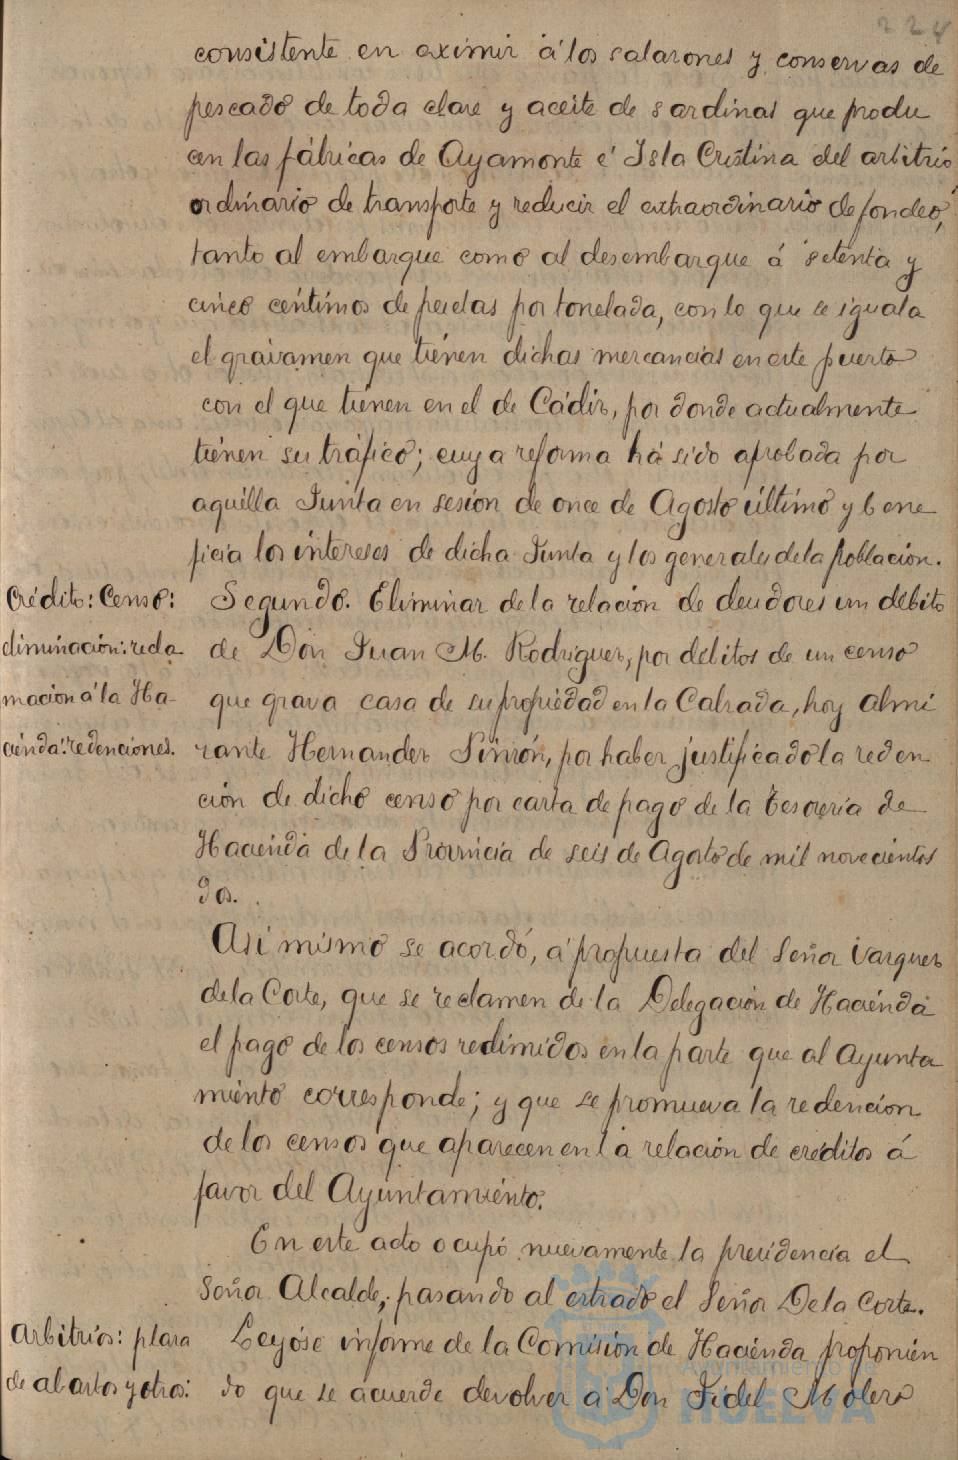 224
consistente en eximir á los salazones y conservas de
pescado de toda clase y aceite de sardinas que produ
cen las fábricas de Ayamonte é Isla Cristina del arbitrio
ordinario de transporte y reducir el extraordinario de fondeo,
tanto al embarque como al desembarque á setenta y
cinco céntimos de pesetas por tonelada, con lo que se iguala
el gravamen que tienen dichas mercancias en este puerto
con el que tienen en el de Cádiz, por donde actualmente
tienen su tráfico; cuya reforma há sido aprobada por
aquella Junta en sesión de once de Agosto último y bene
ficia los intereses de dicha Junta y los generales de la población.
Crédito: Censo:
eliminación: recla
mación á la Ha-
cienda: redenciones.
Segundo. Eliminar de la relación de deudores un débito
de Don Juan M. Rodriguez, por débitos de un censo
que grava casa de su propiedad en la Calzada, hoy almi
rante Hernandez Pinzón, por haber justificado la reden
ción de dicho censo por carta de pago de la tesoreria de
Hacienda de la Provincia de seis de Agosto de mil novecientos
dos.
Asi mismo se acordó, á propuesta del Señor Vazquez
de la Corte, que se reclamen de la Delegación de Hacienda
el pago de los censos redimidos en la parte que al Ayunta
miento corresponde; y que se promueva la redencion
de los censos que aparecen en la relación de créditos á
favor del Ayuntamiento.
En este acto ocupó nuevamente la presidencia el
Señor Alcalde, pasando al estrado el Señor De la Corte.
Arbitrios: plaza
de abastos y otros:
Leyóse informe de la Comisión de Hacienda proponien
do que se acuerde devolver á Don Fidel Molero
Ayuntamiento de
HUELVA